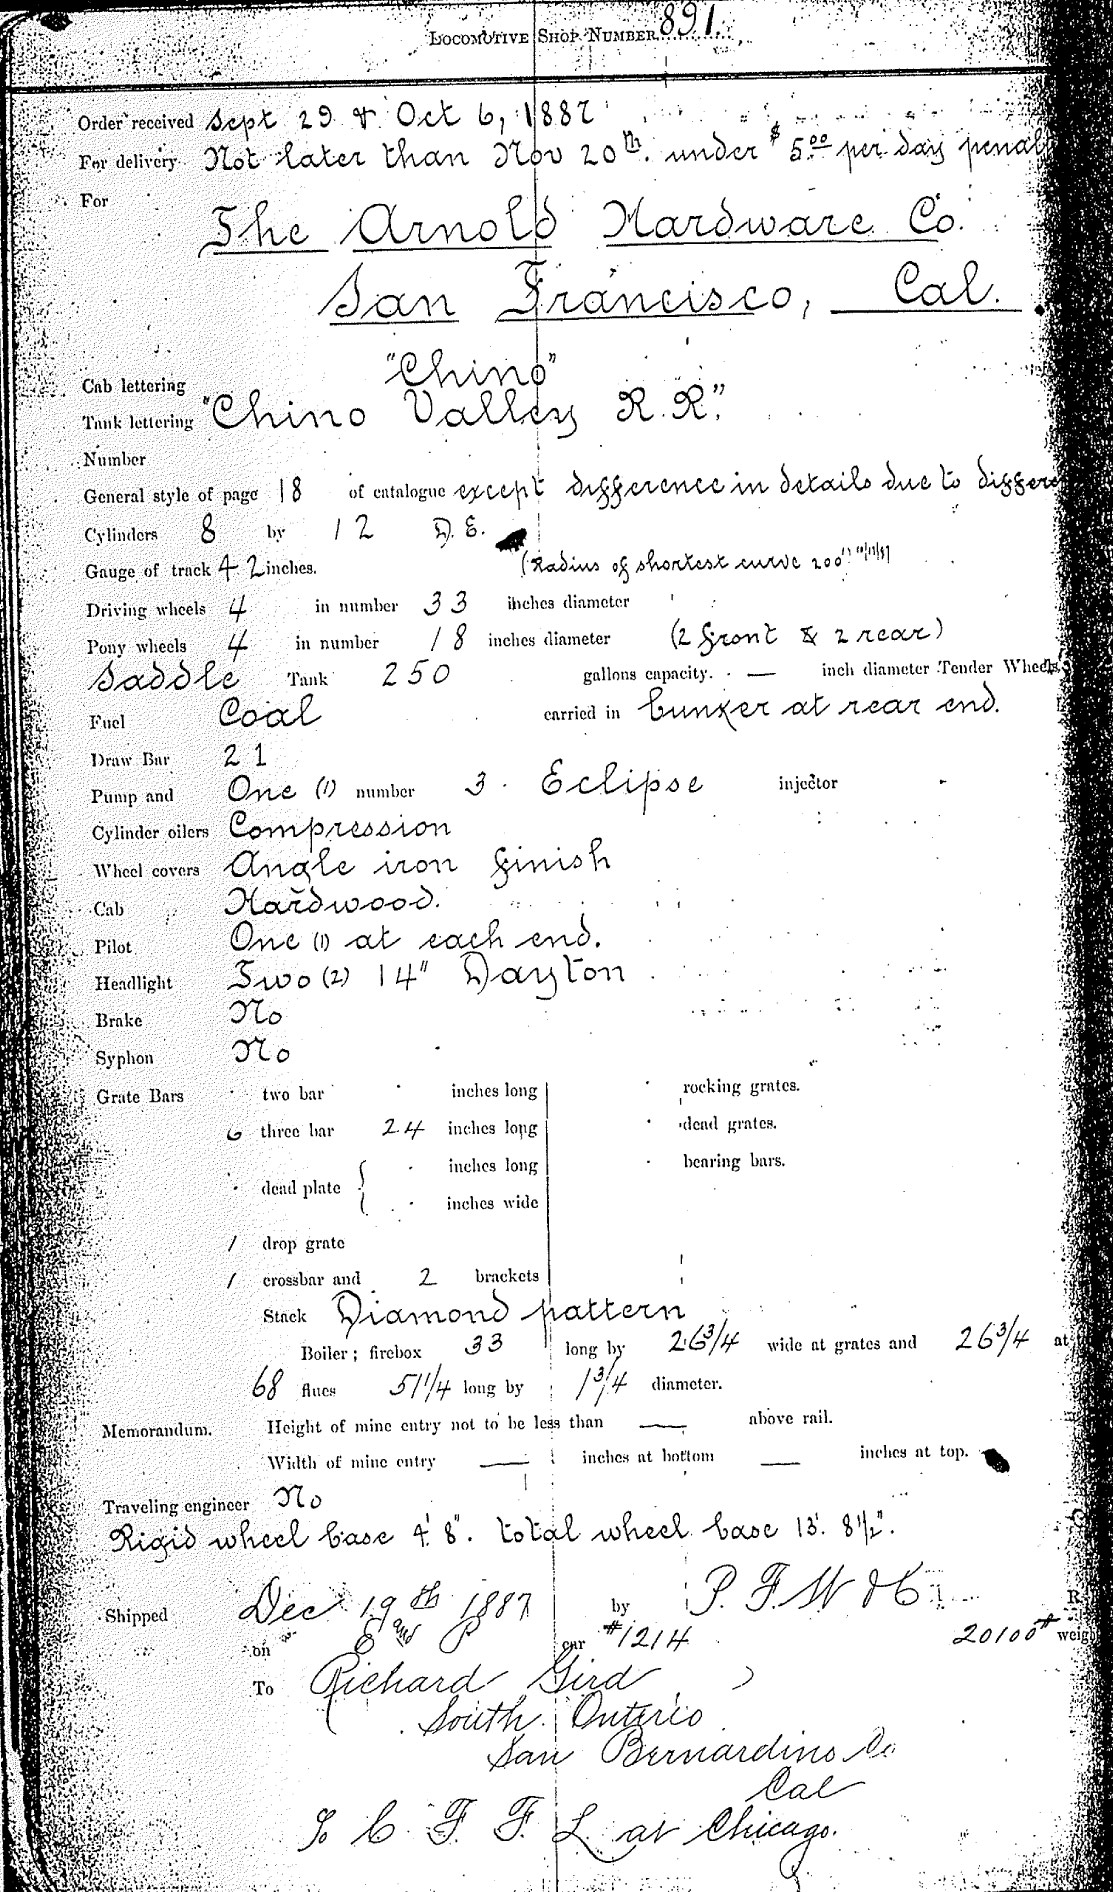 LOCOMOTIVE SHOP NUMBER 891.
Order received Sept 29 & Oct 6, 1887
For delivery Not later than Nov 20th. under $5.00 per day penal
For
The Arnold Hardware Co.
San Francisco, Cal.
Cab lettering "Chino"
Tank lettering "Chino Valley R.R."
Number
General style of page 18 of catalogue except difference in details due to differe
Cylinders 8 by 12 D.E.
Gauge of track 42 inches. (Radius of shortest curve 200'
Driving wheels 4 in number 33 inches diameter
Pony wheels 4 in number 18 inches diameter (2 front & 2 rear)
Saddle Tank 250 gallons capacity. — inch diameter Tender Wheels
Fuel Coal carried in bunker at rear end.
Draw Bar 21
Pump and One (1) number 3. Eclipse injector
Cylinder oilers Compression
Wheel covers Angle iron finish
Cab Hardwood.
Pilot One (1) at each end.
Headlight Two (2) 14" Dayton
Brake No
Syphon No
Grate Bars two bar inches long rocking grates.
6 three bar 24 inches long dead grates.
dead plate { inches long bearing bars.
inches wide
1 drop grate
1 crossbar and 2 brackets
Stack Diamond pattern
Boiler; firebox 33 long by 26 3/4 wide at grates and 26 3/4 at
68 flues 51 1/4 long by 1 3/4 diameter.
Memorandum. Height of mine entry not to be less than — above rail.
Width of mine entry — inches at bottom — inches at top.
Traveling engineer No
Rigid wheel base 4' 8". total wheel base 13' 8 1/2".
Shipped Dec 19th 1887 by P. F. W & C R.
on E and P car #1214 20100# weigh
To Richard Gird
South Onterio
San Bernardino Co
Cal
C. F. F. L at Chicago.